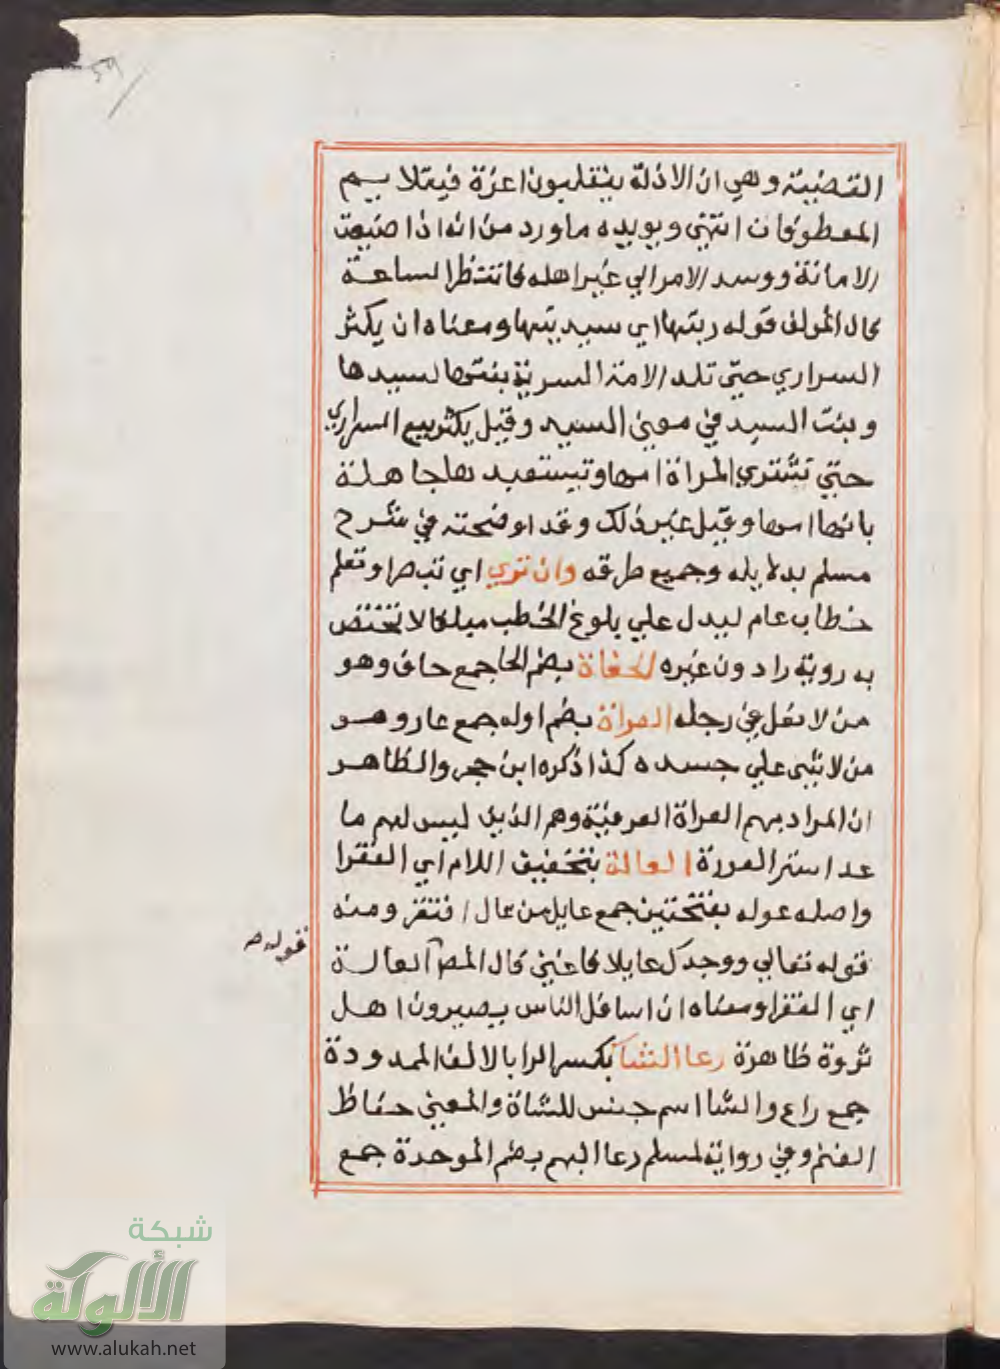 59
القضية وهي ان الاذلة ينقلبون اعزة فيتلايم
المعطوفان انتهي ويويده ما ورد من انه اذا ضيعت
الامانة ووسد الامر الي غير اهله فانتظر الساعة
قال المولف قوله ربتها اي سيدتها ومعناه ان يكثر
السراري حتي تلد الامة السرية بنتها لسيدها
وبنت السيد في معني السيد وقيل يكثر بيع السراري
حتي تشتري المراة امها وتستعبدها جاهلة
بانها امها وقيل غير ذلك وقد اوضحته في شرح
مسلم بدلايله وجميع طرقه وان تري اي تبصر او تعلم
خطاب عام ليدل علي بلوغ الخطب مبلغا لا تختص
به روية را دون غيره الحفاة بضم الحا جمع حاف وهو
من لا نعل في رجله العراة بضم اوله جمع عار وهو
من لا شي علي جسده كذا ذكره ابن حجر والظاهر
ان المراد بهم العراة العرفية وهم الذين ليس لهم ما
عدا ستر العورة العالة بتخفيف اللام اي الفقرا
واصله عوله بفتحتين جمع عايل من عال افتقر ومنه
قوله تعالي ووجدك عايلا فاغني قال المص العالة
اي الفقرا ومعناه ان اسافل الناس يصيرون اهل
ثروة ظاهرة رعا الشا بكسر الرا بالالف الممدودة
جمع راع والشا اسم جنس للشاة والمعني حفاظ
الغنم وفي رواية لمسلم رعا البهم بضم الموحدة جمع
شبكة
الألوكة
www.alukah.net